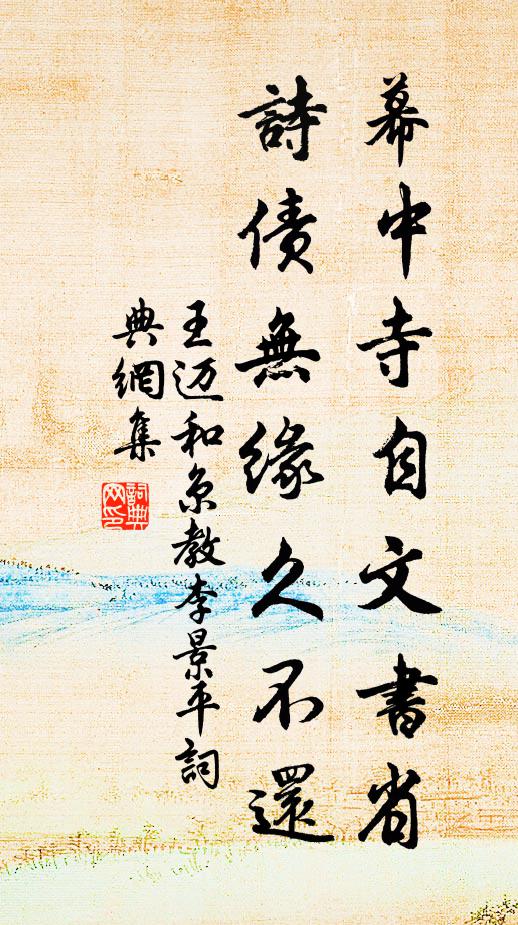 幕中寺自文書省
詩債無緣久不還
王迈和京教李景平詞
典網集
詞典
网印